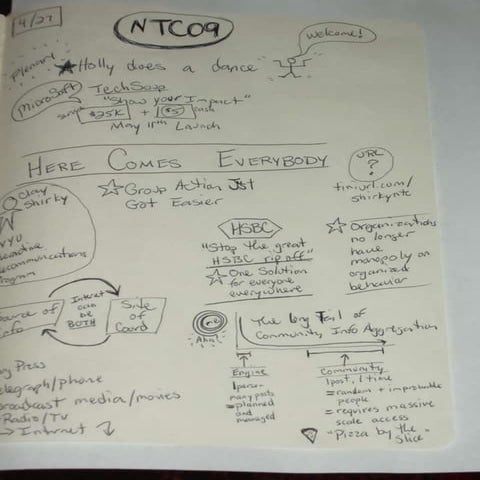 4/27
NTC09
Welcome!
Plenary
Holly does a dance
Microsoft
TechSoup
"Show your Impact"
$25K + ($5) cash
May 11th Launch
HERE COMES EVERYBODY
Clay
Shirky
NYU
Interactive
Telecommunications
Program
Group Action Just
Got Easier
URL
?
tinyurl.com/
shirkyntc
HSBC
"Stop the great
HSBC rip off"
One Solution
for everyone
everywhere
Organizations
no longer
have
monopoly on
organized
behavior
Source of
Info
Internet
can
be
BOTH
Site
of
Coord
Aha!
The Long Tail of
Community Info Aggregation
Engine
1 person
many posts
= planned
and
managed
Community
1 post, 1 time
= random + improbable
people
= requires massive
scale access
"Pizza by the
Slice"
Press
telegraph/phone
broadcast media/movies
Radio/TV
→ Internet